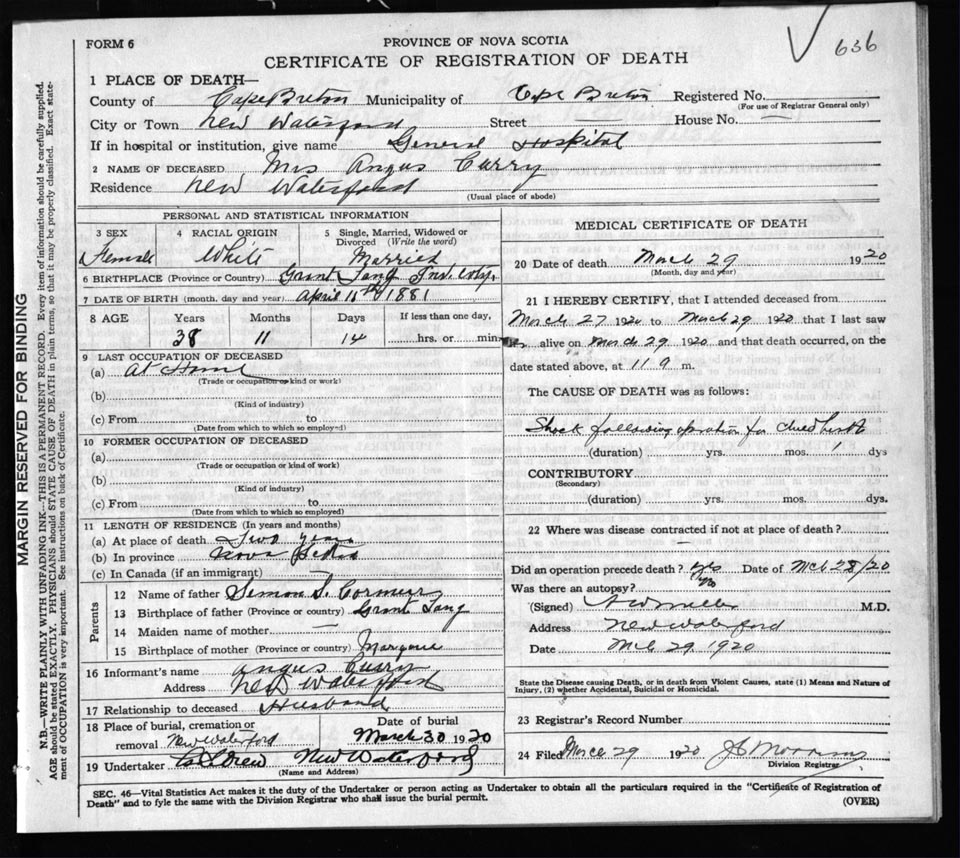 636
FORM 6
PROVINCE OF NOVA SCOTIA
CERTIFICATE OF REGISTRATION OF DEATH
MARGIN RESERVED FOR BINDING
N.B.—WRITE PLAINLY WITH UNFADING INK—THIS IS A PERMANENT RECORD. Every item of information should be carefully supplied.
AGE should be stated EXACTLY. PHYSICIANS should STATE CAUSE OF DEATH in plain terms, so that it may be properly classified. Exact statement of OCCUPATION is very important. See instructions on back of Certificate.
1 PLACE OF DEATH—
County of Cape Breton Municipality of Cape Breton Registered No.
(For use of Registrar General only)
City or Town New Waterford Street — House No. —
If in hospital or institution, give name General Hospital
2 NAME OF DECEASED Mrs Angus Curry
Residence New Waterford
(Usual place of abode)
PERSONAL AND STATISTICAL INFORMATION
3 SEX Female
4 RACIAL ORIGIN White
5 Single, Married, Widowed or Divorced (Write the word) Married
6 BIRTHPLACE (Province or Country) Grant Tang
7 DATE OF BIRTH (month, day and year) April 1881
8 AGE Years Months Days If less than one day,
38 11 14 hrs. or min.
9 LAST OCCUPATION OF DECEASED
(a) At Home
(Trade or occupation or kind or work)
(b)
(Kind of industry)
(c) From to
(Date from which to which so employed)
10 FORMER OCCUPATION OF DECEASED
(a)
(Trade or occupation or kind of work)
(b)
(Kind of industry)
(c) From to
(Date from which to which so employed)
11 LENGTH OF RESIDENCE (In years and months)
(a) At place of death Two years
(b) In province Nova Scotia
(c) In Canada (if an immigrant)
Parents
12 Name of father Simon S. Cormier
13 Birthplace of father (Province or country) Grant Tang
14 Maiden name of mother —
15 Birthplace of mother (Province or country) Margaree
16 Informant's name Angus Curry
Address New Waterford
17 Relationship to deceased Husband
18 Place of burial, cremation or removal New Waterford
Date of burial March 30 1920
19 Undertaker New Waterford
(Name and Address)
MEDICAL CERTIFICATE OF DEATH
20 Date of death March 29 1920
(Month, day and year)
21 I HEREBY CERTIFY, that I attended deceased from
March 27 1920 to March 29 1920 that I last saw
alive on March 29 1920 and that death occurred, on the
date stated above, at 11 9 m.
The CAUSE OF DEATH was as follows:
Shock following operation for child birth
(duration) yrs. mos. 1 dys
CONTRIBUTORY
(Secondary)
(duration) yrs. mos. dys.
22 Where was disease contracted if not at place of death?
—
Did an operation precede death? yes Date of Mch 28/20
Was there an autopsy? no
(Signed) A W Miller M.D.
Address New Waterford
Date Mch 29 1920
State the Disease causing Death, or in death from Violent Causes, state (1) Means and Nature of
Injury, (2) whether Accidental, Suicidal or Homicidal.
23 Registrar's Record Number
24 Filed March 29 1920
Division Registrar
SEC. 46—Vital Statistics Act makes it the duty of the Undertaker or person acting as Undertaker to obtain all the particulars required in the "Certificate of Registration of
Death" and to fyle the same with the Division Registrar who shall issue the burial permit.
(OVER)